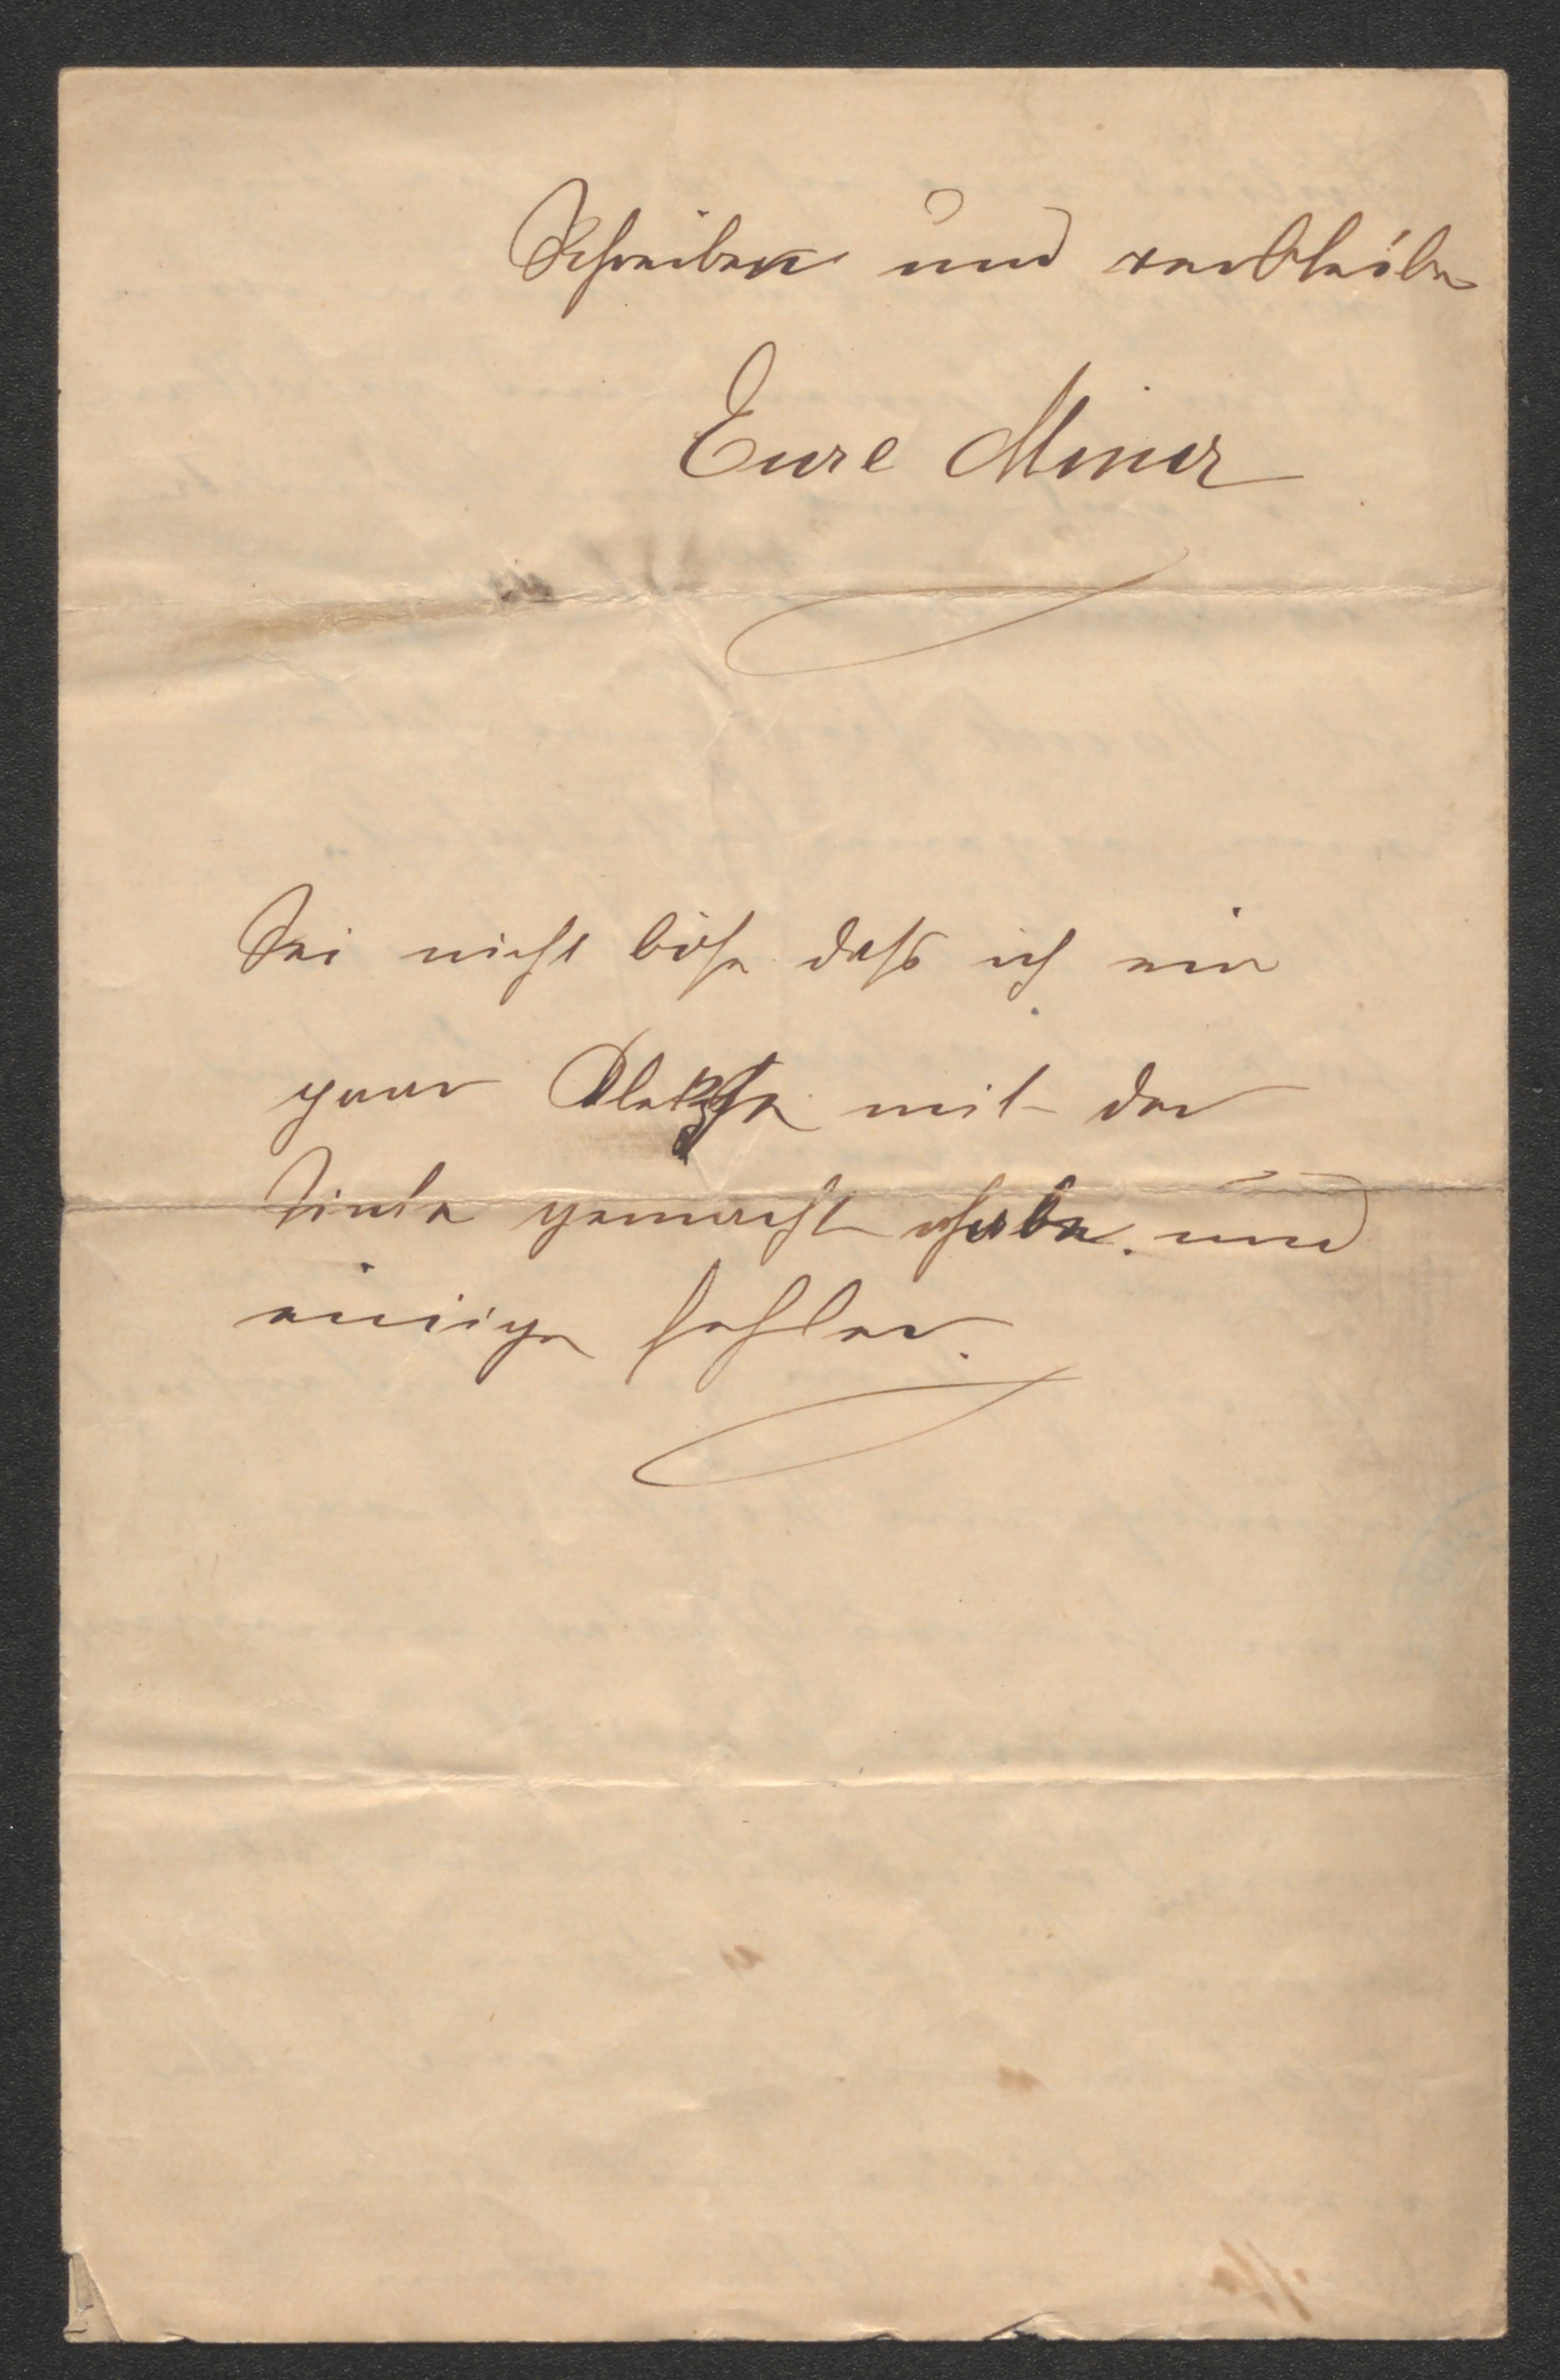 Schreiben und verbleibe
Eure Miner
Sei nicht böse dass ich ein
paar Kleckse mit der
Tinte gemacht habe. und
einige fehler.